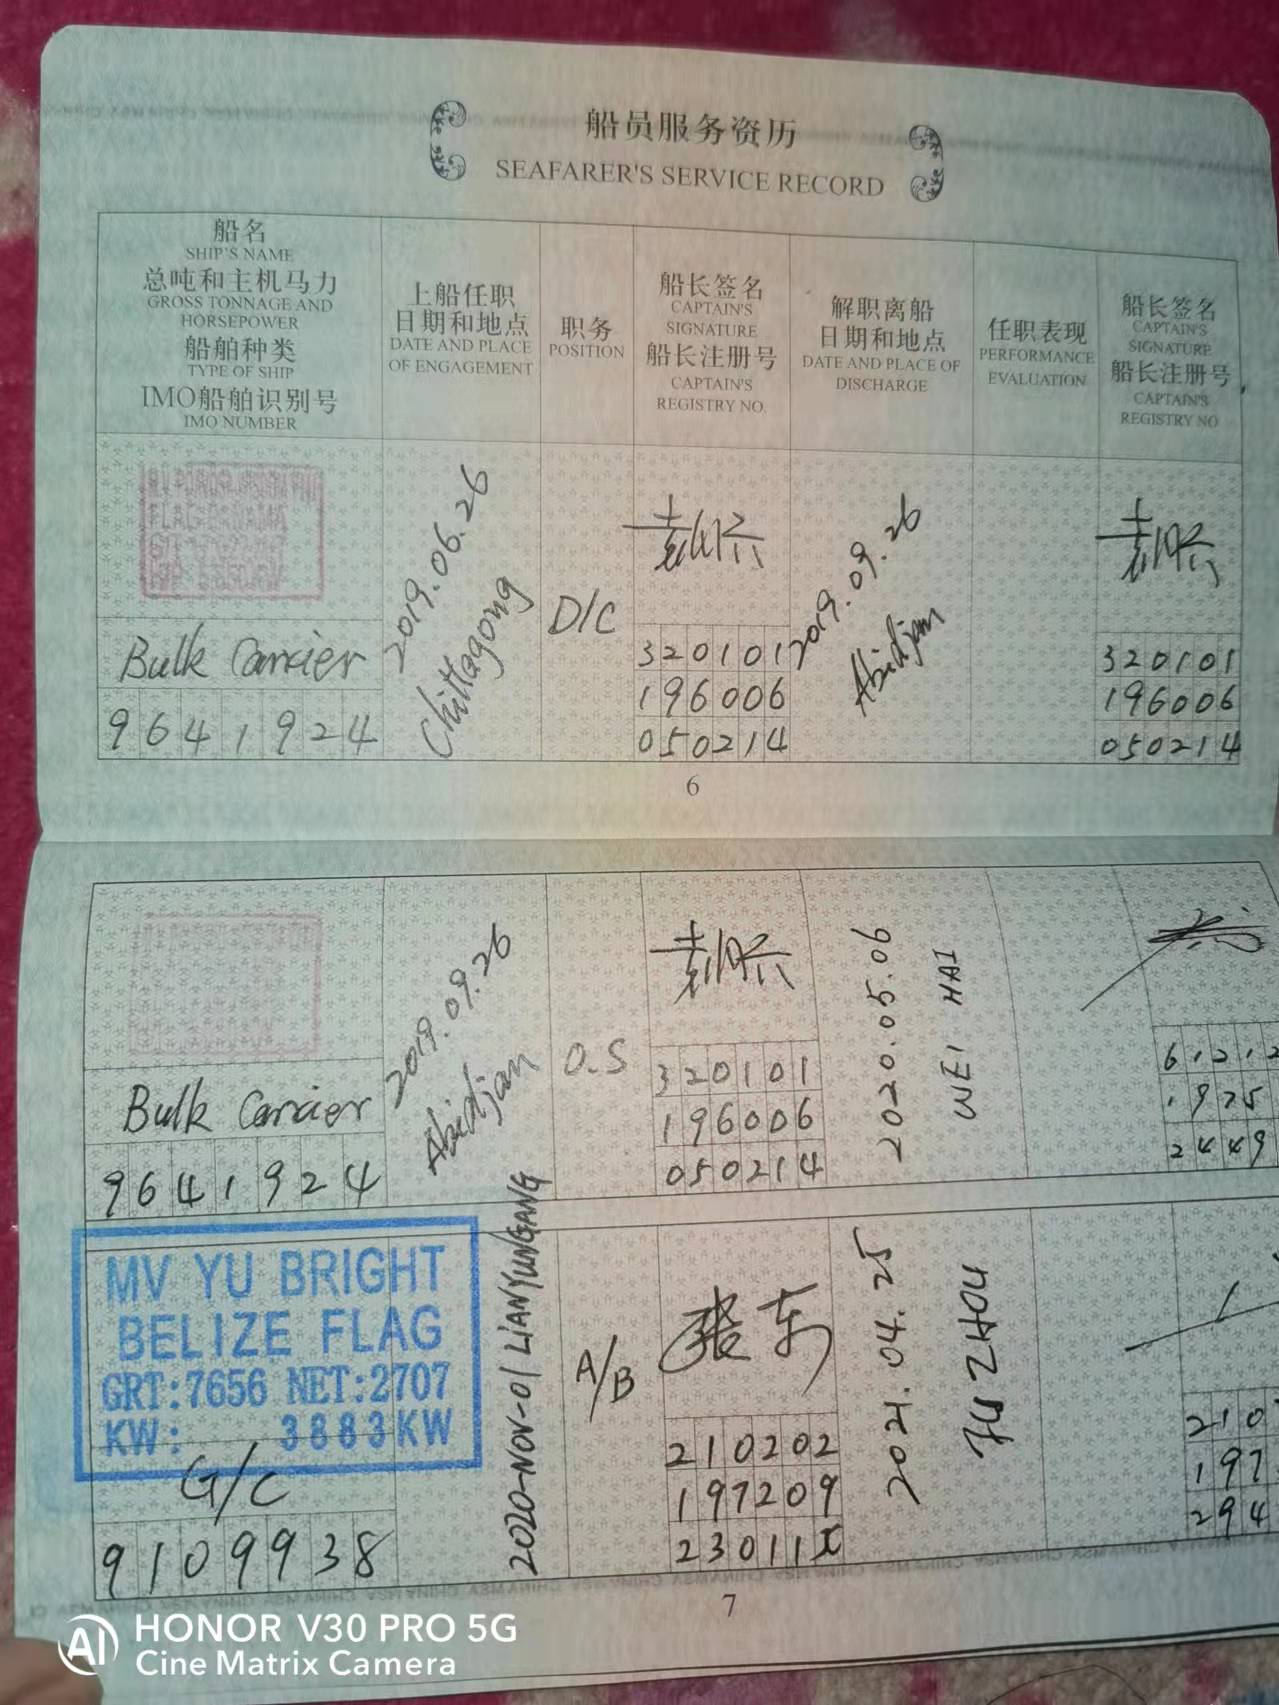 船员服务资历
SEAFARER'S SERVICE RECORD
船名
SHIP'S NAME
总吨和主机马力
GROSS TONNAGE AND
HORSEPOWER
船舶种类
TYPE OF SHIP
IMO船舶识别号
IMO NUMBER
上船任职
日期和地点
DATE AND PLACE
OF ENGAGEMENT
职务
POSITION
船长签名
CAPTAIN'S
SIGNATURE
船长注册号
CAPTAIN'S
REGISTRY NO.
解职离船
日期和地点
DATE AND PLACE OF
DISCHARGE
任职表现
PERFORMANCE
EVALUATION
船长签名
CAPTAIN'S
SIGNATURE
船长注册号
CAPTAIN'S
REGISTRY NO
Bulk Carrier
9641924
2019.06.26
Chittagong
D/C
320101
196006
050214
2019.09.26
Abidjan
320101
196006
050214
6
Bulk Carrier
9641924
2019.09.26
Abidjan
O.S
320101
196006
050214
2020.05.06
WEI HAI
61212
1975
2449
MV YU BRIGHT
BELIZE FLAG
GRT:7656 NET:2707
KW: 3883KW
G/C
9109938
2020-NOV-01 LIANYUNGANG
A/B
张东
210202
197209
23011X
2021.04.25
FU ZHOU
210
197
294
7
HONOR V30 PRO 5G
Cine Matrix Camera